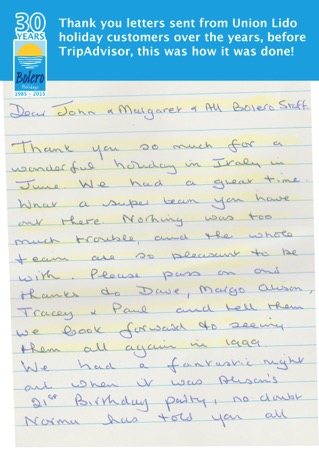 30
YEARS
Bolero
Holidays
1985 - 2015
Thank you letters sent from Union Lido
holiday customers over the years, before
TripAdvisor, this was how it was done!
Dear John & Margaret & All Bolero Staff
Thank you so much for a
wonderful holiday in Italy in
June. We had a great time.
What a super team you have
out there. Nothing was too
much trouble, and the whole
team are so pleasant to be
with. Please pass on our
thanks to Dave, Margo Alison,
Tracey & Paul and tell them
we look forward to seeing
them all again in 1999
We had a fantastic night
out when it was Alison's
21st Birthday party, no doubt
Norma has told you all